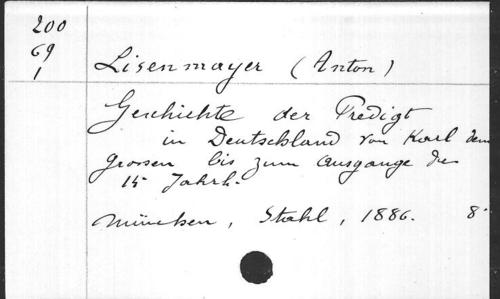 200
69
1
Lisenmayer (Anton)
Geschichte der Predigt
in Deutschland von Karl dem
grossen bis zum Ausgange des
15 Jahrh.
München, Stahl, 1886. 8°